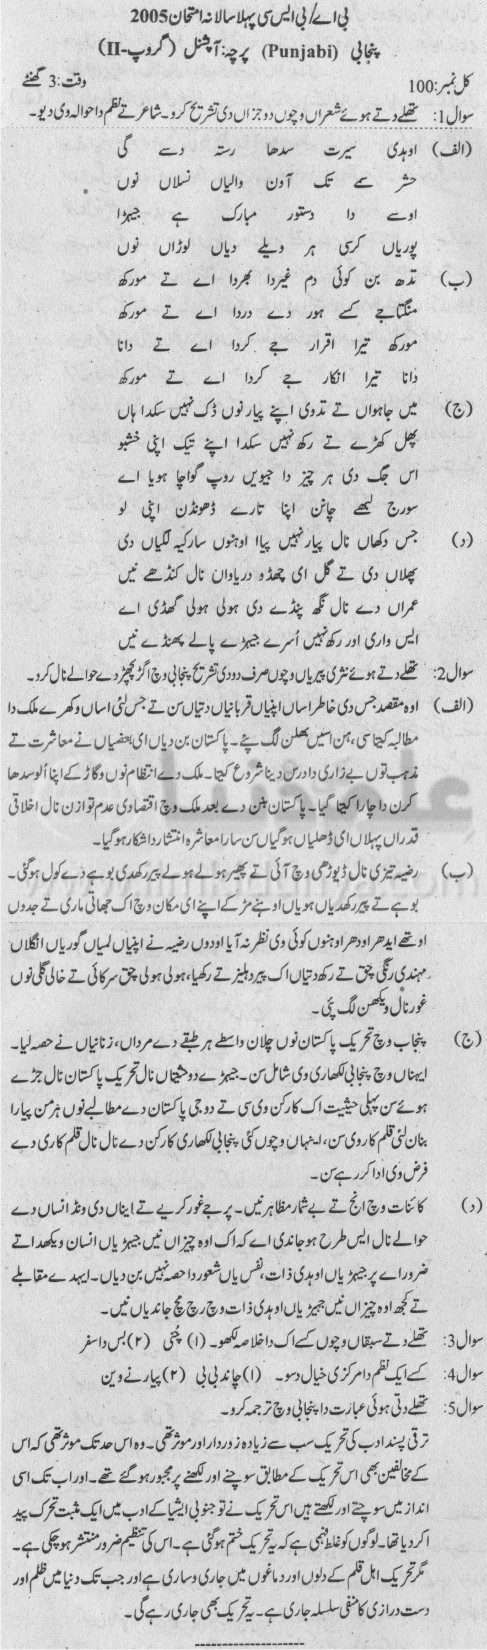 بی اے/بی ایس سی پہلا سالانہ امتحان 2005
پنجابی (Punjabi) پرچہ: آپشنل (گروپ-II)
کل نمبر: 100 وقت: 3 گھنٹے
سوال 1: تھلے دتے ہوئے شعراں وچوں دو جزاں دی تشریح کرو۔ شاعر تے نظم دا حوالہ وی دیو۔
(الف) اوہدی سیرت سدھا رستہ دسے گی
حشر سے تک آون والیاں نسلاں نوں
اوسے دا دستور مبارک ہے جیہڑا
پوریاں کرسی ہر ویلے دیاں لوڑاں نوں
(ب) تدھ بن کوئی دم غیر دا بھردا اے تے مورکھ
منگتا جے کسے ہور دے در دا اے تے مورکھ
مورکھ تیرا اقرار جے کردا اے تے دانا
دانا تیرا انکار جے کردا اے تے مورکھ
(ج) میں چاہواں تے تد وی اپنے پیار نوں ڈک نہیں سکدا ہاں
پھل کھڑے تے رکھ نہیں سکدا اپنے تیک اپنی خشبو
اس جگ دی ہر چیز دا جیویں روپ گواچا ہویا اے
سورج لبھے چانن اپنا تارے ڈھونڈن اپنی لو
(د) جس دکھاں نال پیار نہیں پایا اوہنوں سار کیہ لگیاں دی
پھلاں دی تے گل ای چھڈو دریاواں نال کنڈھے نیں
عمراں دے نال نگھ پنڈے دی ہولی ہولی گھٹدی اے
ایس واری اوہ رکھ نہیں اسرے جیہڑے پالے پھنڈے نیں
سوال 2: تھلے دتے ہوئے نثری پیریاں وچوں صرف دو دی تشریح پنجابی وچ اگڑ پچھڑ دے حوالے نال کرو۔
(الف) اوہ مقصد جس دی خاطر اساں اپنیاں قربانیاں دتیاں سن تے جس لئی اساں وکھرے ملک دا
مطالبہ کیتا سی، ہن اسیں بھلن لگ پئے۔ پاکستان بن دیاں ای بعضیاں نے معاشرت تے
مذہب توں بے زاری دا درس دینا شروع کیتا۔ ملک دے انتظام نوں وگاڑ کے اپنا الو سدھا
کرن دا چارا کیتا گیا۔ پاکستان بنن دے بعد ملک وچ اقتصادی عدم توازن نال اخلاقی
قدراں پہلاں ای ڈھلیاں ہو گیاں سن سارا معاشرہ انتشار دا شکار ہو گیا۔
(ب) رضیہ تیزی نال ڈیوڑھی وچ آئی تے پھیر ہولے ہولے پیر رکھدی بوہے دے کول ہو گئی۔
بوہے تے پیر رکھدیاں ہویاں اوہنے مڑ کے اپنے ای مکان وچ اک جھاتی ماری تے جدوں
اوتھے ایدھر اودھر اوہنوں کوئی وی نظر نہ آیا اودوں رضیہ نے اپنیاں لمیاں گوریاں انگلاں
مہندی رنگی چق تے رکھ دتیاں اک پیر دہلیز تے رکھیا، ہولی ہولی چق سرکائی تے خالی گلی نوں
غور نال ویکھن لگ پئی۔
(ج) پنجاب وچ تحریک پاکستان نوں چلان واسطے ہر طبقے دے مرداں، زنانیاں نے حصہ لیا۔
ایہناں وچ پنجابی لکھاری وی شامل سن۔ جیہڑے دو حیثیتاں نال تحریک پاکستان نال جڑے
ہوئے سن پہلی حیثیت اک کارکن وی سی تے دوجی پاکستان دے مطالبے نوں ہر من پیارا
بنان لئی قلم کار وی سن، اینہاں وچوں کئی پنجابی لکھاری کارکن دے نال نال قلم کاری دے
فرض وی ادا کر رہے سن۔
(د) کائنات وچ انج تے بے شمار مظاہر نیں۔ پر جے غور کریے تے ایناں دی ونڈ انساں دے
حوالے نال ایس طرح ہو جاندی اے کہ اک اوہ چیزاں نیں جیہڑیاں انسان ویکھدا تے
ضرور اے پر جیہڑیاں اوہدی ذات، نفس یاں شعور دا حصہ نہیں بن دیاں۔ ایہدے مقابلے
تے کجھ اوہ چیزاں نیں جیہڑیاں اوہدی ذات وچ رچ مچ جاندیاں نیں۔
سوال 3: تھلے دتے سبقاں وچوں کسے اک دا خلاصہ لکھو۔ (۱) چُنی (۲) بس دا سفر
سوال 4: کسے ایک نظم دا مرکزی خیال دسو۔ (۱) چاند بی بی (۲) پیار نے وین
سوال 5: تھلے دتی ہوئی عبارت دا پنجابی وچ ترجمہ کرو۔
ترقی پسند ادب کی تحریک سب سے زیادہ زوردار اور موثر تھی۔ وہ اس حد تک موثر تھی کہ اس
کے مخالفین بھی اس تحریک کے مطابق سوچنے اور لکھنے پر مجبور ہو گئے تھے۔ اور اب تک اسی
انداز میں سوچتے اور لکھتے ہیں اس تحریک نے تو جنوبی ایشیا کے ادب میں ایک مثبت تحرک پید
اکر دیا تھا۔ لوگوں کو غلط فہمی ہے کہ یہ تحریک ختم ہو گئی ہے۔ اس کی تنظیم ضرور منتشر ہو چکی ہے۔
مگر تحریک اہل قلم کے دلوں اور دماغوں میں جاری و ساری ہے اور جب تک دنیا میں ظلم اور
دست درازی کا منفی سلسلہ جاری ہے۔ یہ تحریک بھی جاری رہے گی۔